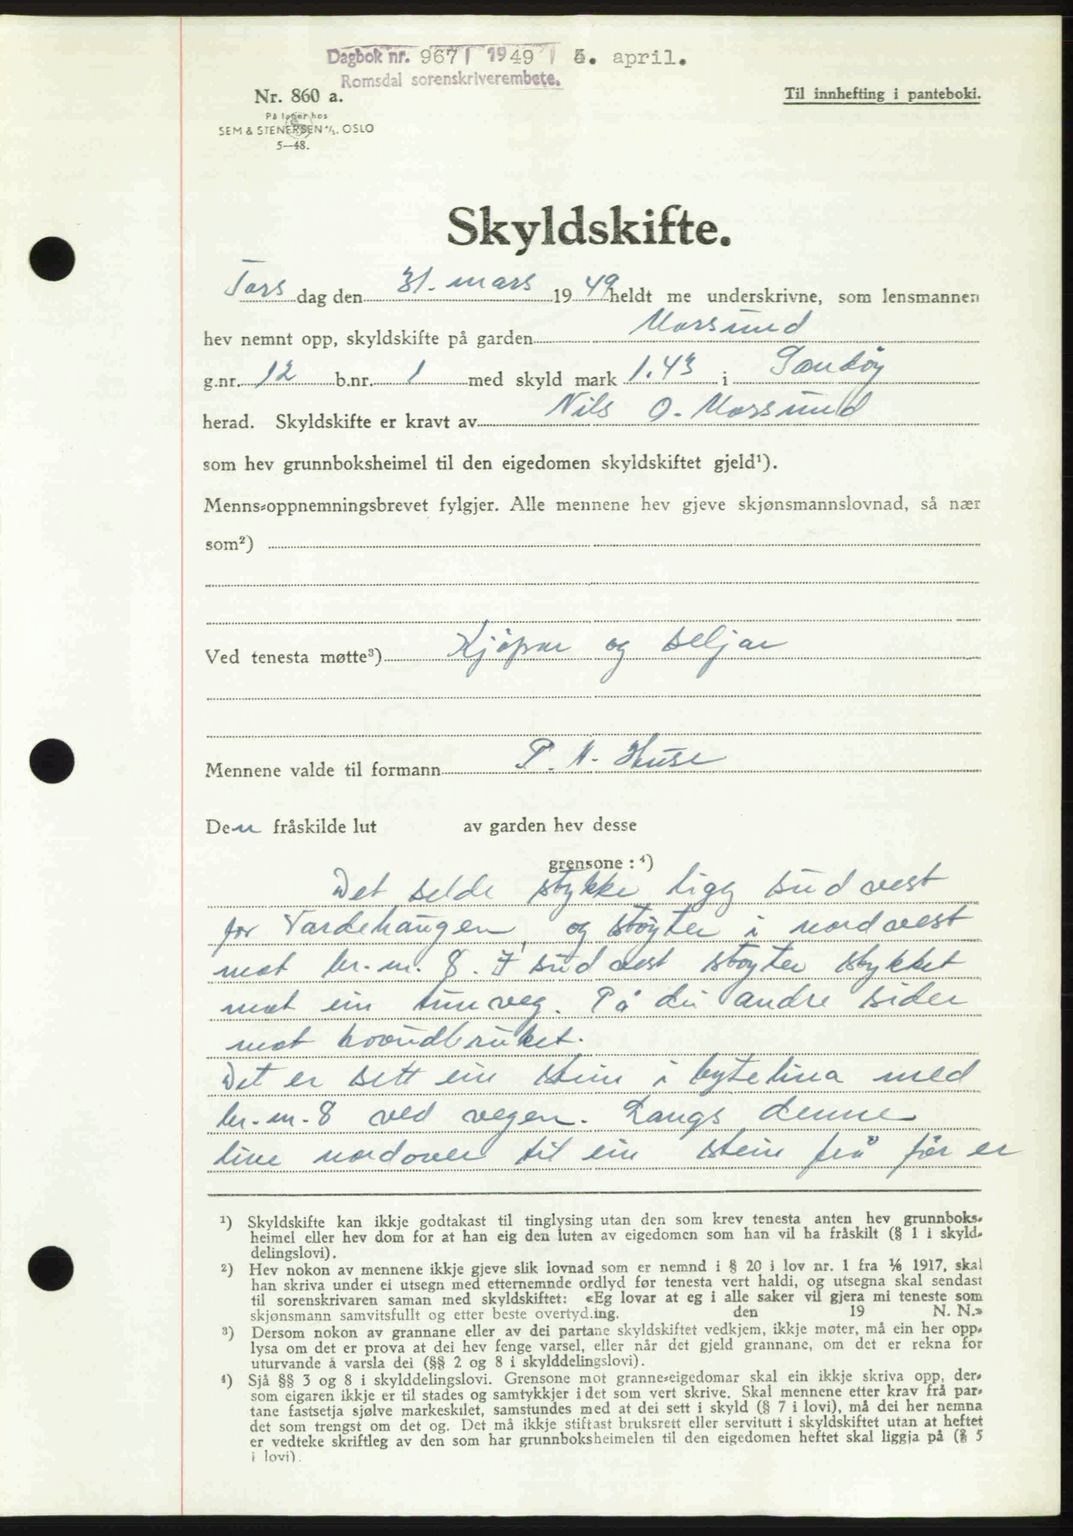 Dagbok nr. 967 / 1949 / 5. april.
Romsdal sorenskriverembete.
Nr. 860 a.
Til innhefting i panteboki.
På lager hos
SEM & STENERSEN A/S. OSLO
5—48.
Skyldskifte.
Tors dag den 31. mars 1949 heldt me underskrivne, som lensmannen
hev nemnt opp, skyldskifte på garden Morsund
g.nr. 12 b.nr. 1 med skyld mark 1.43 i Sandöy
herad. Skyldskifte er kravt av Nils O. Morsund
som hev grunnboksheimel til den eigedomen skyldskiftet gjeld¹).
Menns-oppnemningsbrevet fylgjer. Alle mennene hev gjeve skjønsmannslovnad, så nær
som²)
Ved tenesta møtte³) Kjöpar og seljar
Mennene valde til formann P. A. Huse
Den fråskilde lut av garden hev desse
grensone : ⁴)
Det selde stykke ligg sudvest
for Vardehaugen, og stöyter i nordvest
mot br. nr. 8. I sudvest stöyter stykket
mot ein tunveg. På dei andre sider
mot hovudbruket.
Det er sett ein stein i bytelina med
br. nr. 8 ved vegen. Langs denne
line nordover til ein stein frå för er
¹) Skyldskifte kan ikkje godtakast til tinglysing utan den som krev tenesta anten hev grunnboks-
heimel eller hev dom for at han eig den luten av eigedomen som han vil ha fråskilt (§ 1 i skyld-
delingslovi).
²) Hev nokon av mennene ikkje gjeve slik lovnad som er nemnd i § 20 i lov nr. 1 fra 1/6 1917, skal
han skriva under ei utsegn med etternemnde ordlyd før tenesta vert haldi, og utsegna skal sendast
til sorenskrivaren saman med skyldskiftet: «Eg lovar at eg i alle saker vil gjera mi teneste som
skjønsmann samvitsfullt og etter beste overtyding. den 19 N. N.»
³) Dersom nokon av grannane eller av dei partane skyldskiftet vedkjem, ikkje møter, må ein her opp-
lysa om det er prova at dei hev fenge varsel, eller når det gjeld grannane, om det er rekna for
uturvande å varsla dei (§§ 2 og 8 i skylddelingslovi).
⁴) Sjå §§ 3 og 8 i skylddelingslovi. Grensone mot granne-eigedomar skal ein ikkje skriva opp, der-
som eigaren ikkje er til stades og samtykkjer i det som vert skrive. Skal mennene etter krav frå par-
tane fastsetja sjølve markeskilet, samstundes med at dei sett i skyld (§ 7 i lovi), må dei her nemna
det som trengst om det og. Det må ikkje stiftast bruksrett eller servitutt i skyldskiftet utan at heftet
er vedteke skriftleg av den som har grunnboksheimelen til den eigedomen heftet skal liggja på (§ 5
i lovi).